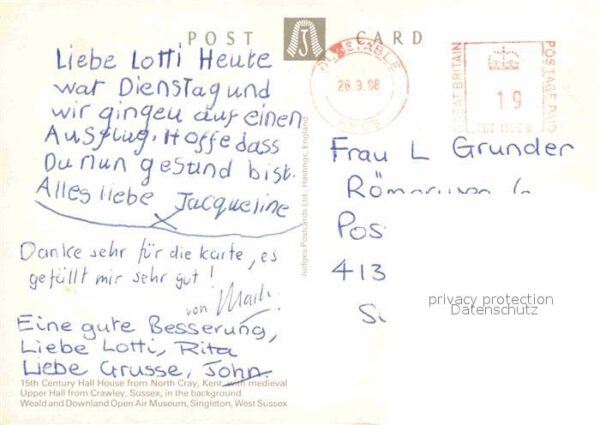 POST CARD
Liebe Lotti Heute
war Dienstag und
wir gingen auf einen
Ausflug. Hoffe dass
Du nun gesund bist.
Alles liebe Jacqueline
Danke sehr für die Karte, es
gefällt mir sehr gut!
von
Eine gute Besserung,
Liebe Lotti, Rita
Liebe Grusse, John.
15th Century Hall House from North Cray, Kent, with medieval
Upper Hall from Crawley, Sussex, in the background.
Weald and Downland Open Air Museum, Singleton, West Sussex
Judges Postcards Ltd., Hastings, England
DUNSTABLE
26.9.88
BEDS
GREAT BRITAIN
19
POSTAGE PAID
Frau L Grunder
Pos
413
privacy protection
Datenschutz